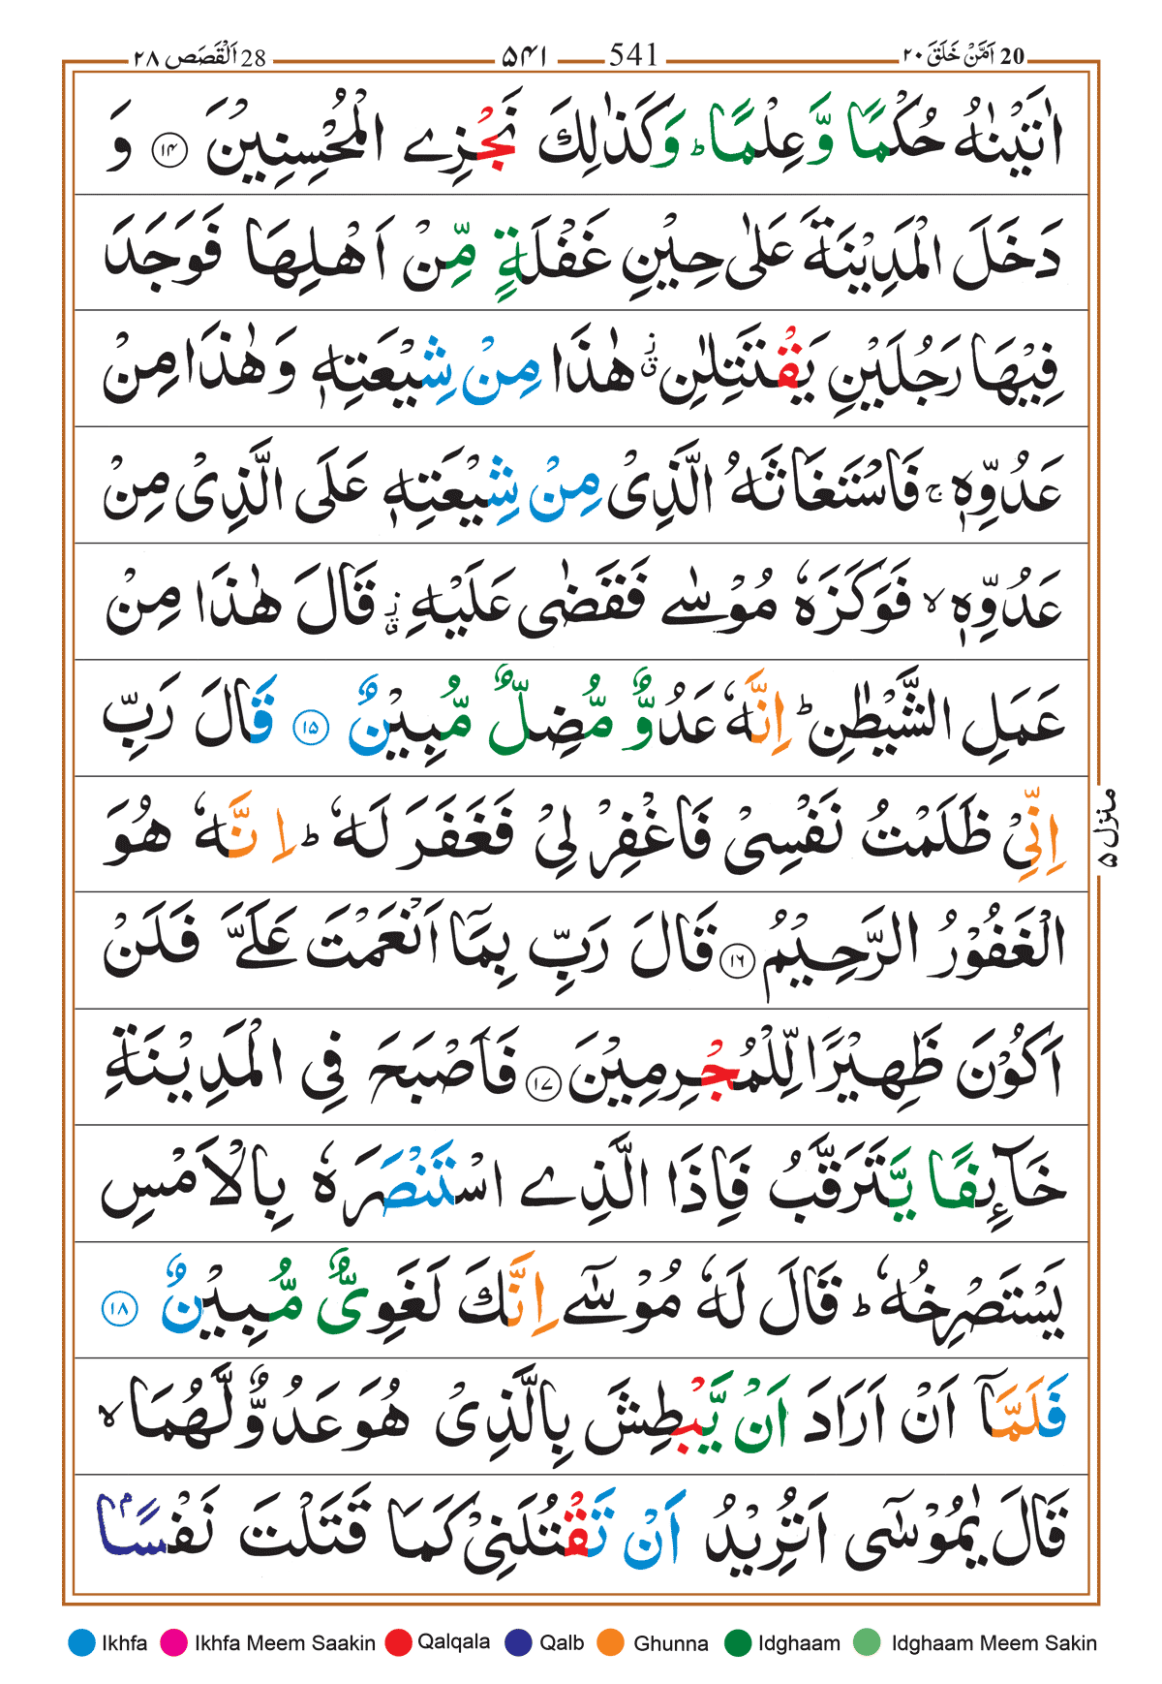 28 اَلْقَصَص ٢٨ ۵۴۱ 541 20 اَمَّنْ خَلَقَ ٢٠
اٰتَيْنٰهُ حُكْمًا وَّ عِلْمًا ؕ وَكَذٰلِكَ نَجْزِے الْمُحْسِنِيْنَ ۱۴ وَ
دَخَلَ الْمَدِيْنَةَ عَلٰى حِيْنِ غَفْلَةٍ مِّنْ اَهْلِهَا فَوَجَدَ
فِيْهَا رَجُلَيْنِ يَقْتَتِلٰنِ ۫ هٰذَا مِنْ شِيْعَتِهٖ وَهٰذَا مِنْ
عَدُوِّهٖ ۚ فَاسْتَغَاثَهُ الَّذِىْ مِنْ شِيْعَتِهٖ عَلَى الَّذِىْ مِنْ
عَدُوِّهٖ ۙ فَوَكَزَهٗ مُوْسٰے فَقَضٰى عَلَيْهِ ۫ قَالَ هٰذَا مِنْ
عَمَلِ الشَّيْطٰنِ ؕ اِنَّهٗ عَدُوٌّ مُّضِلٌّ مُّبِيْنٌ ۱۵ قَالَ رَبِّ
اِنِّىْ ظَلَمْتُ نَفْسِىْ فَاغْفِرْ لِىْ فَغَفَرَ لَهٗ ؕ اِنَّهٗ هُوَ
الْغَفُوْرُ الرَّحِيْمُ ۱۶ قَالَ رَبِّ بِمَاۤ اَنْعَمْتَ عَلَىَّ فَلَنْ
اَكُوْنَ ظَهِيْرًا لِّلْمُجْرِمِيْنَ ۱۷ فَاَصْبَحَ فِى الْمَدِيْنَةِ
خَآئِفًا يَّتَرَقَّبُ فَاِذَا الَّذِے اسْتَنْصَرَهٗ بِالْاَمْسِ
يَسْتَصْرِخُهٗ ؕ قَالَ لَهٗ مُوْسٰۤے اِنَّكَ لَغَوِىٌّ مُّبِيْنٌ ۱۸
فَلَمَّاۤ اَنْ اَرَادَ اَنْ يَّبْطِشَ بِالَّذِىْ هُوَ عَدُوٌّ لَّهُمَا ۙ
قَالَ يٰمُوْسٰۤى اَتُرِيْدُ اَنْ تَقْتُلَنِىْ كَمَا قَتَلْتَ نَفْسًۢا
منزل ۵
Ikhfa Ikhfa Meem Saakin Qalqala Qalb Ghunna Idghaam Idghaam Meem Sakin